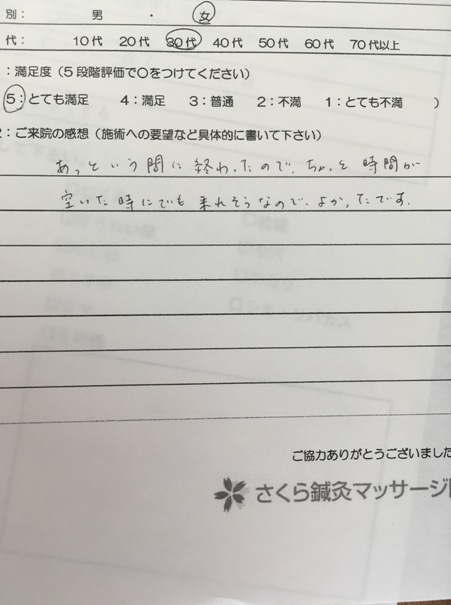 別： 男 ・ 女
代： 10代 20代 30代 40代 50代 60代 70代以上
：満足度（5段階評価で〇をつけてください）
5：とても満足 4：満足 3：普通 2：不満 1：とても不満 ）
2：ご来院の感想（施術への要望など具体的に書いて下さい）
あっという間に終わったので、ちょっと時間が
空いた時にでも来れそうなので、よかったです。
ご協力ありがとうございました
さくら鍼灸マッサージ